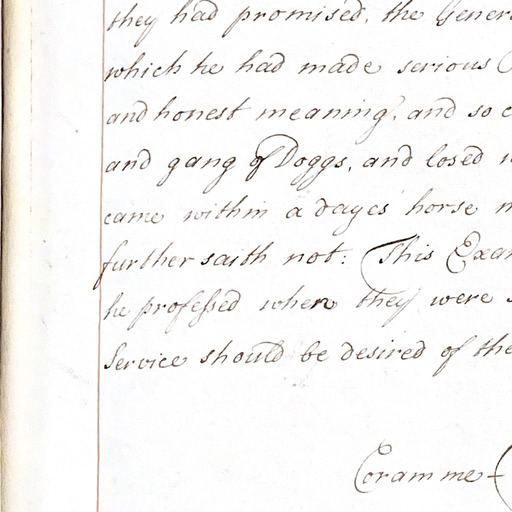 they had promised, the Gener
which he had made serious
and honest meaning, and so
and gang of Doggs, and losed
came within a dayes horse
further saith not: This Exa
he professed when they were
Service should be desired of the
Coram me